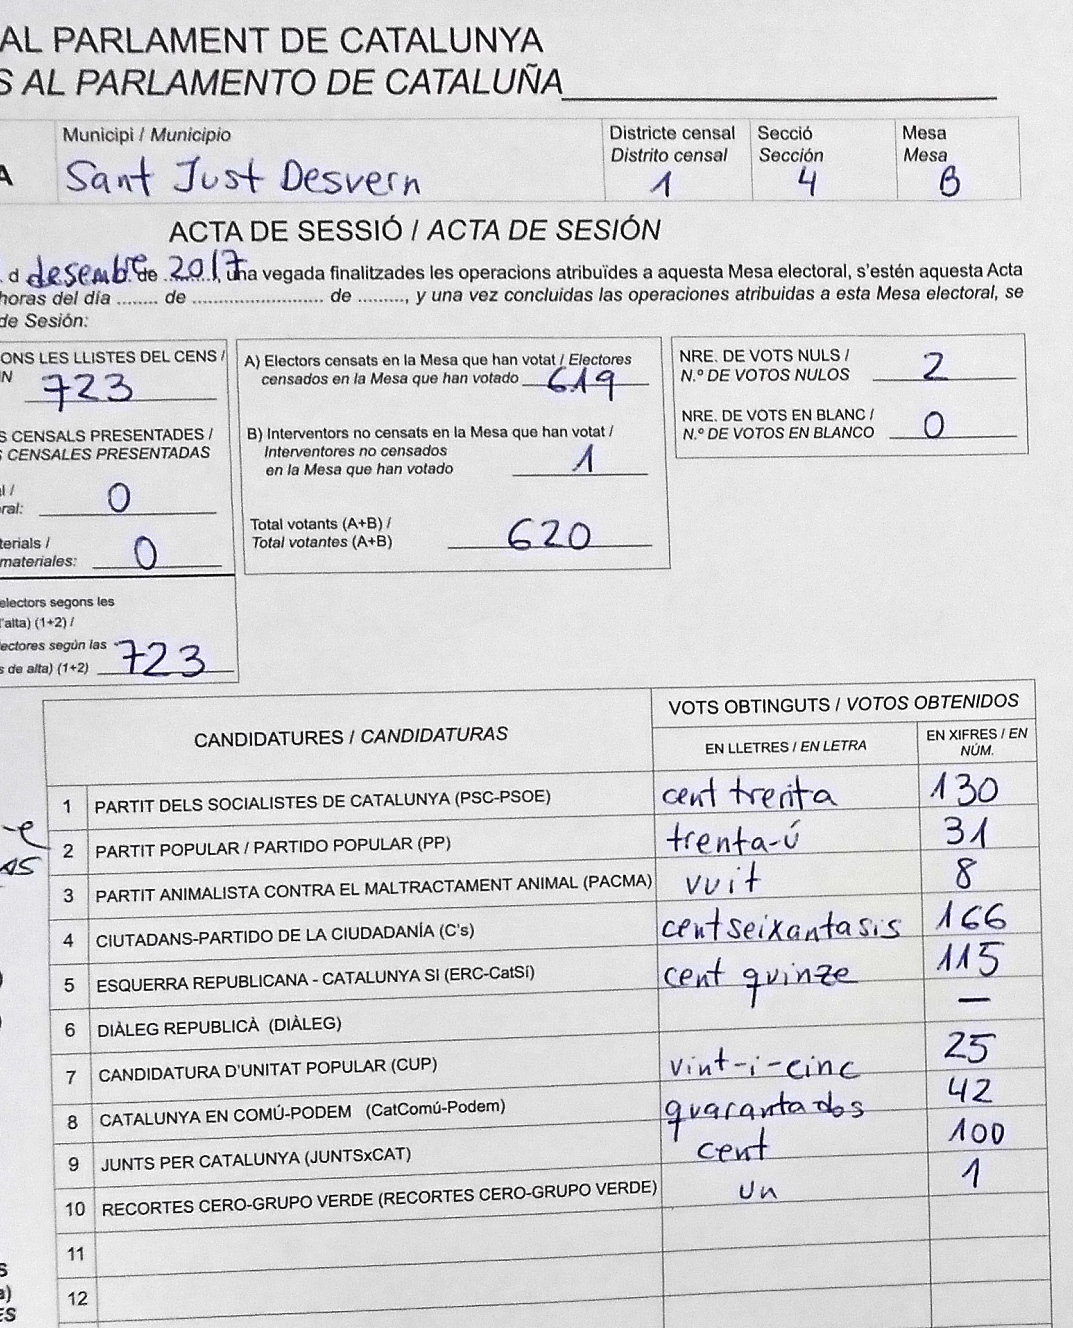 AL PARLAMENT DE CATALUNYA
S AL PARLAMENTO DE CATALUÑA
A
Municipi / Municipio
Sant Just Desvern
Districte censal
Distrito censal
1
Secció
Sección
4
Mesa
Mesa
B
ACTA DE SESSIÓ / ACTA DE SESIÓN
d desembre de 2017, una vegada finalitzades les operacions atribuïdes a aquesta Mesa electoral, s'estén aquesta Acta
horas del día ........ de ........................ de ........., y una vez concluidas las operaciones atribuidas a esta Mesa electoral, se
de Sesión:
ONS LES LLISTES DEL CENS /
N
723
S CENSALS PRESENTADES /
S CENSALES PRESENTADAS
al /
ral:
0
terials /
materiales:
0
electors segons les
'alta) (1+2) /
lectores según las
s de alta) (1+2)
723
A) Electors censats en la Mesa que han votat / Electores
censados en la Mesa que han votado
619
B) Interventors no censats en la Mesa que han votat /
Interventores no censados
en la Mesa que han votado
1
Total votants (A+B) /
Total votantes (A+B)
620
NRE. DE VOTS NULS /
N.º DE VOTOS NULOS
2
NRE. DE VOTS EN BLANC /
N.º DE VOTOS EN BLANCO
0
CANDIDATURES / CANDIDATURAS
VOTS OBTINGUTS / VOTOS OBTENIDOS
EN LLETRES / EN LETRA
EN XIFRES / EN NÚM.
1 PARTIT DELS SOCIALISTES DE CATALUNYA (PSC-PSOE) cent trenta 130
2 PARTIT POPULAR / PARTIDO POPULAR (PP) trenta-ú 31
3 PARTIT ANIMALISTA CONTRA EL MALTRACTAMENT ANIMAL (PACMA) vuit 8
4 CIUTADANS-PARTIDO DE LA CIUDADANÍA (C's) cent seixantasis 166
5 ESQUERRA REPUBLICANA - CATALUNYA SI (ERC-CatSí) cent quinze 115
6 DIÀLEG REPUBLICÀ (DIÀLEG) —
7 CANDIDATURA D'UNITAT POPULAR (CUP) vint-i-cinc 25
8 CATALUNYA EN COMÚ-PODEM (CatComú-Podem) quarantados 42
9 JUNTS PER CATALUNYA (JUNTSxCAT) cent 100
10 RECORTES CERO-GRUPO VERDE (RECORTES CERO-GRUPO VERDE) un 1
11
12